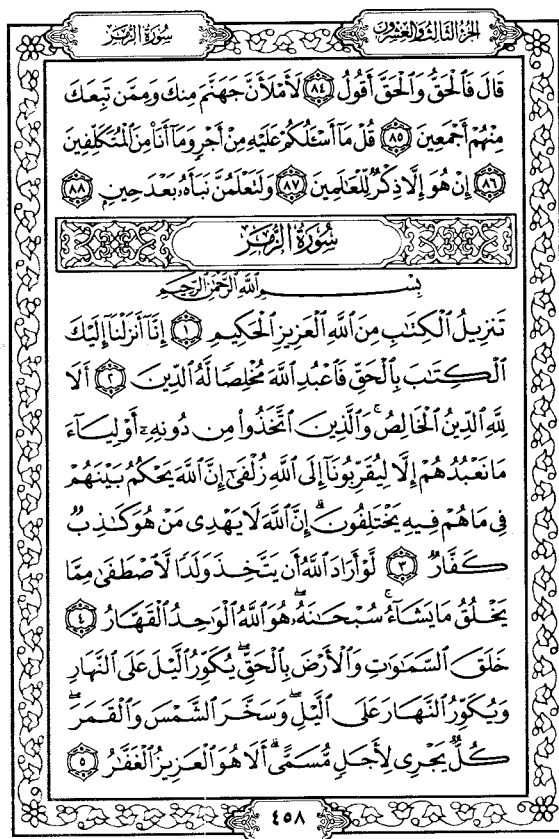 الجزء الثالث والعشرون
سورة الزمر
قَالَ فَالْحَقُّ وَالْحَقَّ أَقُولُ ٨٤ لَأَمْلَأَنَّ جَهَنَّمَ مِنكَ وَمِمَّن تَبِعَكَ
مِنْهُمْ أَجْمَعِينَ ٨٥ قُلْ مَآ أَسْـَٔلُكُمْ عَلَيْهِ مِنْ أَجْرٍ وَمَآ أَنَا۠ مِنَ الْمُتَكَلِّفِينَ
٨٦ إِنْ هُوَ إِلَّا ذِكْرٌ لِّلْعَـٰلَمِينَ ٨٧ وَلَتَعْلَمُنَّ نَبَأَهُۥ بَعْدَ حِينٍ ٨٨
سُورَةُ الزُّمَرِ
بِسْمِ اللَّهِ الرَّحْمَـٰنِ الرَّحِيمِ
تَنزِيلُ الْكِتَـٰبِ مِنَ اللَّهِ الْعَزِيزِ الْحَكِيمِ ١ إِنَّآ أَنزَلْنَآ إِلَيْكَ
الْكِتَـٰبَ بِالْحَقِّ فَاعْبُدِ اللَّهَ مُخْلِصًا لَّهُ الدِّينَ ٢ أَلَا
لِلَّهِ الدِّينُ الْخَالِصُ ۚ وَالَّذِينَ اتَّخَذُوا۟ مِن دُونِهِۦٓ أَوْلِيَآءَ
مَا نَعْبُدُهُمْ إِلَّا لِيُقَرِّبُونَآ إِلَى اللَّهِ زُلْفَىٰٓ إِنَّ اللَّهَ يَحْكُمُ بَيْنَهُمْ
فِى مَا هُمْ فِيهِ يَخْتَلِفُونَ ۗ إِنَّ اللَّهَ لَا يَهْدِى مَنْ هُوَ كَـٰذِبٌ
كَفَّارٌ ٣ لَّوْ أَرَادَ اللَّهُ أَن يَتَّخِذَ وَلَدًا لَّاصْطَفَىٰ مِمَّا
يَخْلُقُ مَا يَشَآءُ ۚ سُبْحَـٰنَهُۥ ۖ هُوَ اللَّهُ الْوَاحِدُ الْقَهَّارُ ٤
خَلَقَ السَّمَـٰوَٰتِ وَالْأَرْضَ بِالْحَقِّ ۖ يُكَوِّرُ الَّيْلَ عَلَى النَّهَارِ
وَيُكَوِّرُ النَّهَارَ عَلَى الَّيْلِ ۖ وَسَخَّرَ الشَّمْسَ وَالْقَمَرَ ۖ
كُلٌّ يَجْرِى لِأَجَلٍ مُّسَمًّى ۗ أَلَا هُوَ الْعَزِيزُ الْغَفَّـٰرُ ٥
٤٥٨